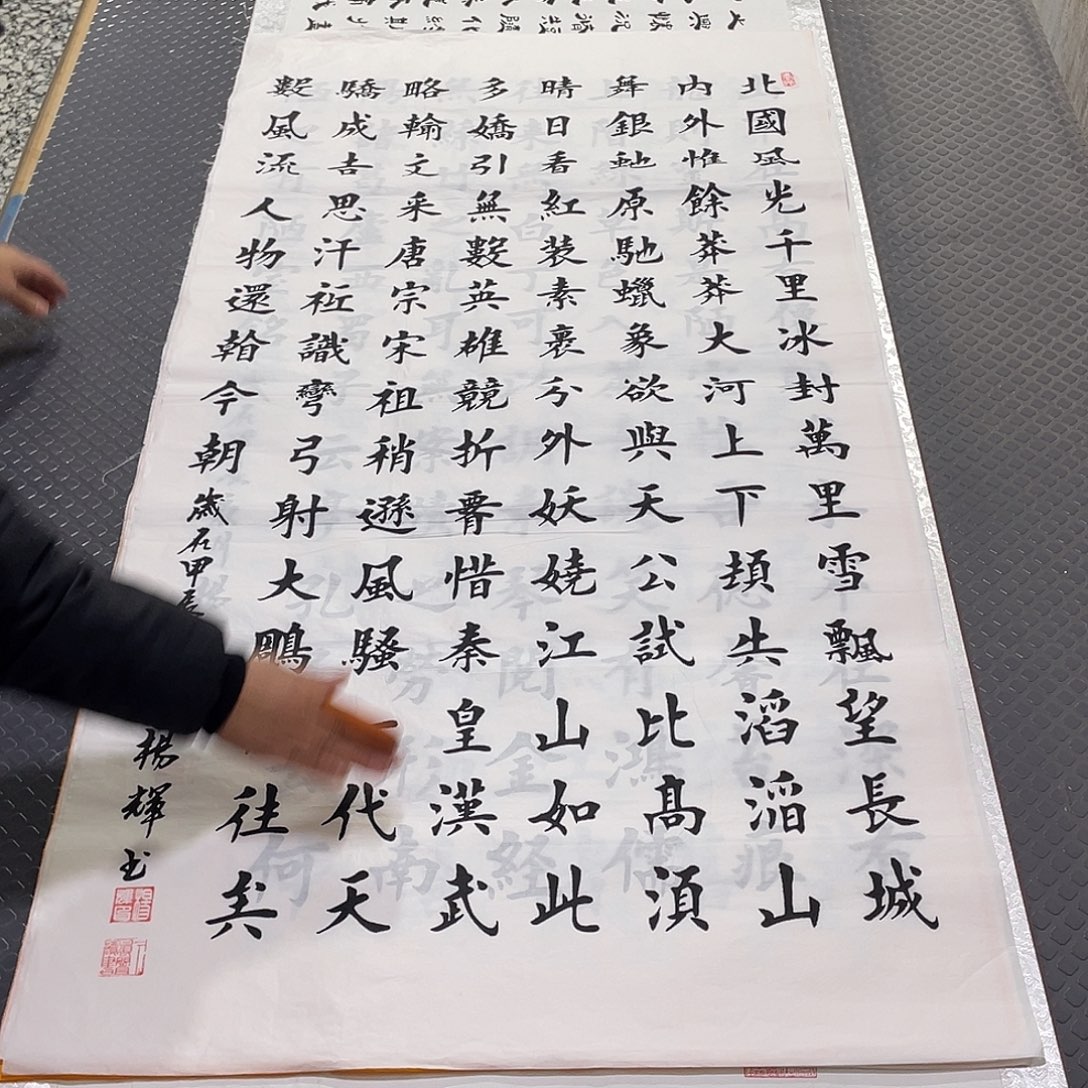 北國風光千里冰封萬里雪飄望長城
内外惟餘莽莽大河上下頓失滔滔山
舞銀虵原馳蠟象欲與天公試比髙須
晴日看紅裝素裹分外妖嬈江山如此
多嬌引無數英雄競折腰惜秦皇漢武
略輸文采唐宗宋祖稍遜風騷一代天
驕成吉思汗祗識彎弓射大鵰往矣
數風流人物還看今朝歲在甲辰楊輝书